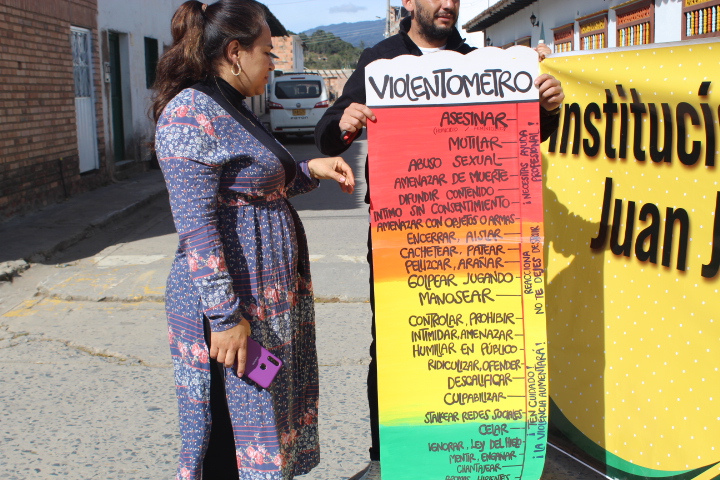 VIOLENTOMETRO
ASESINAR
MUTILAR
ABUSO SEXUAL
AMENAZAR DE MUERTE
DIFUNDIR CONTENIDO
INTIMO SIN CONSENTIMIENTO
AMENAZAR CON OBJETOS O ARMAS
ENCERRAR, AISLAR
CACHETEAR, PATEAR
PELLIZCAR, ARAÑAR
GOLPEAR JUGANDO
MANOSEAR
CONTROLAR, PROHIBIR
INTIMIDAR, AMENAZAR
HUMILLAR EN PÚBLICO
RIDICULIZAR, OFENDER
DESCALIFICAR
CULPABILIZAR
STALKEAR REDES SOCIALES
CELAR
IGNORAR, LEY DEL HIELO
MENTIR, ENGAÑAR
CHANTAJEAR
¡NECESITAS AYUDA
PROFESIONAL!
REACCIONA
NO TE DEJES DESTRUIR
¡TEN CUIDADO!
¡LA VIOLENCIA AUMENTARÁ!
Instituci
Juan J